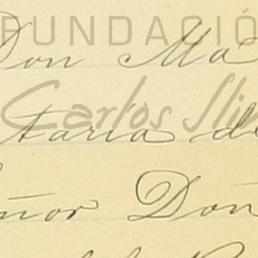 FUNDACIÓ
Don Ma
Carlos Sli
taria de
eñor Don